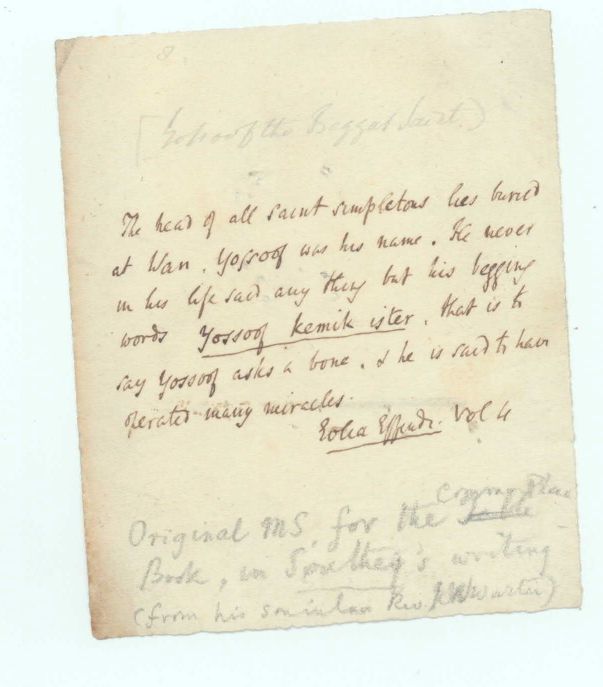 8.
[Yossoof the Beggar Saint.]
The head of all saint simpletons lies buried
at Wan. Yossoof was his name. He never
in his life said any thing but his begging
words Yossoof kemik ister, that is to
say Yossoof asks a bone. & he is said to have
operated many miracles.
Evlia Effendi. Vol 4
Original MS. for the Common Place
Book, in Southey's writing
(from his son in law Rev. J W Warter)